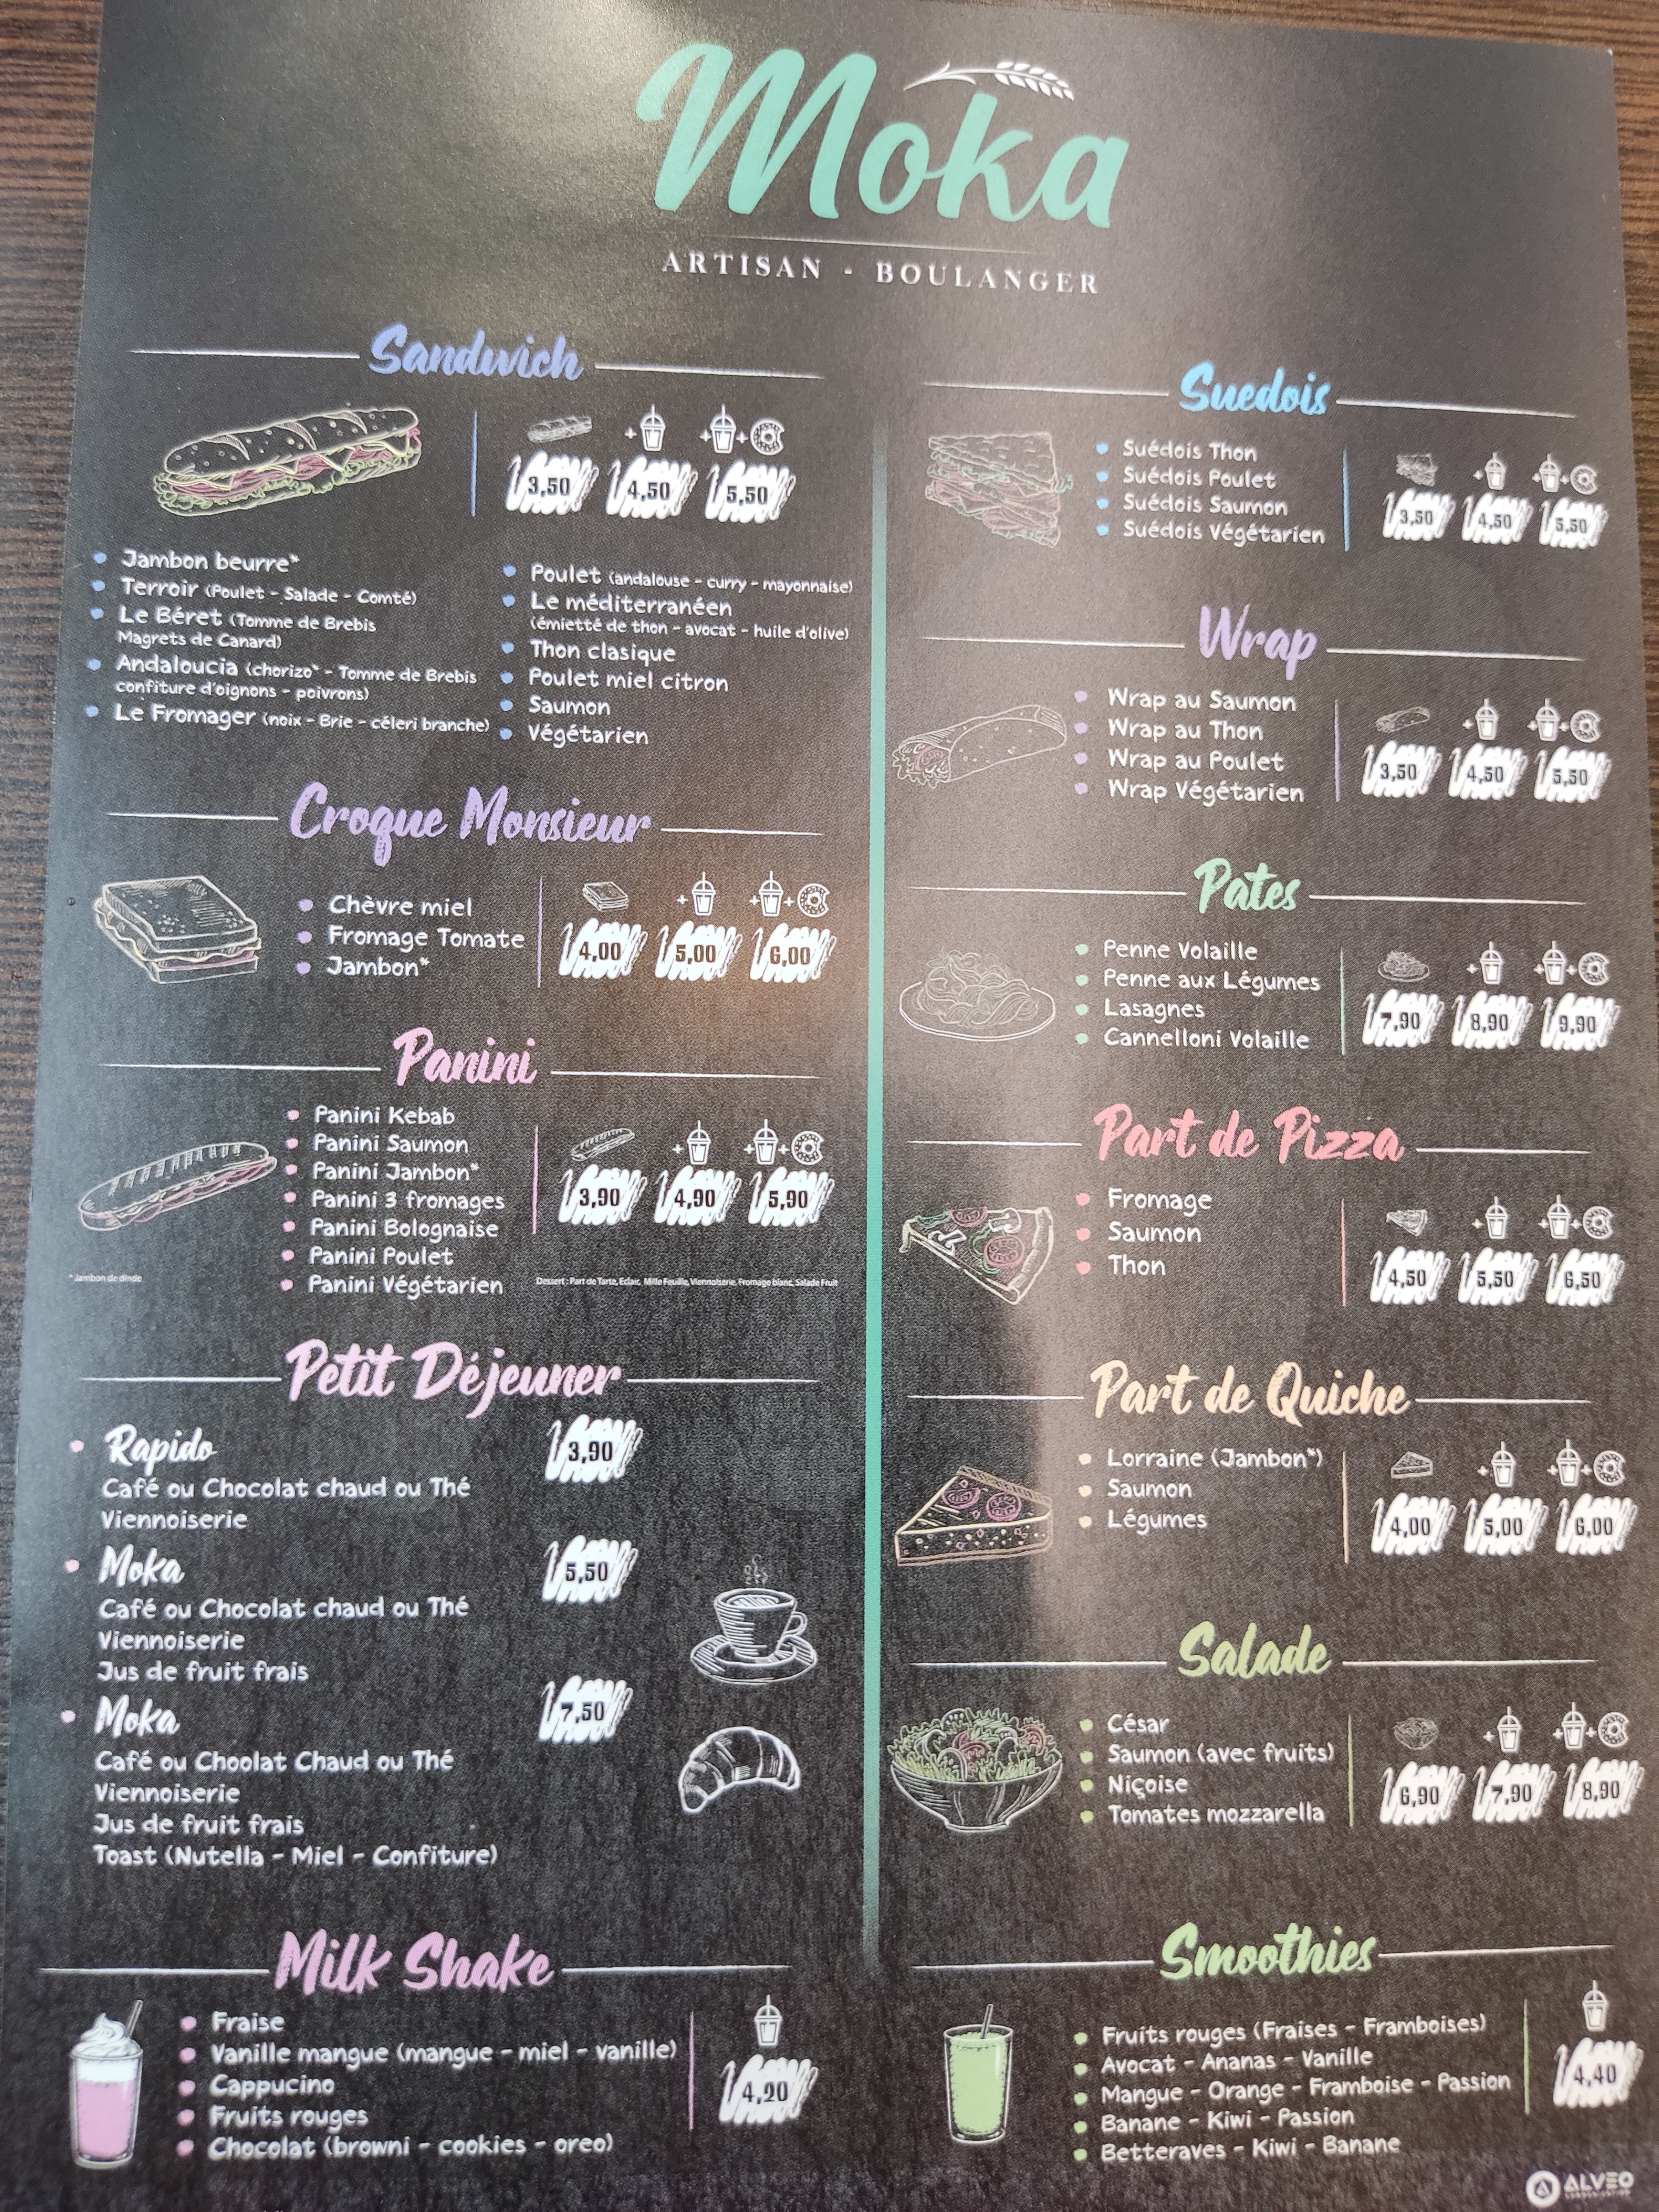 Moka
ARTISAN - BOULANGER
Sandwich
+ + +
3,50 4,50 5,50
Jambon beurre*
Terroir (Poulet - Salade - Comté)
Le Béret (Tomme de Brebis
Magrets de Canard)
Andaloucia (chorizo* - Tomme de Brebis
confiture d'oignons - poivrons)
Le Fromager (noix - Brie - céleri branche)
Poulet (andalouse - curry - mayonnaise)
Le méditerranéen
(émietté de thon - avocat - huile d'olive)
Thon clasique
Poulet miel citron
Saumon
Végétarien
Croque Monsieur
Chèvre miel
Fromage Tomate
Jambon*
+ + +
4,00 5,00 6,00
Panini
Panini Kebab
Panini Saumon
Panini Jambon*
Panini 3 fromages
Panini Bolognaise
Panini Poulet
Panini Végétarien
+ + +
3,90 4,90 5,90
* Jambon de dinde
Dessert : Part de Tarte, Eclair, Mille Feuille, Viennoiserie, Fromage blanc, Salade Fruit
Petit Déjeuner
Rapido 3,90
Café ou Chocolat chaud ou Thé
Viennoiserie
Moka 5,50
Café ou Chocolat chaud ou Thé
Viennoiserie
Jus de fruit frais
Moka 7,50
Café ou Choolat Chaud ou Thé
Viennoiserie
Jus de fruit frais
Toast (Nutella - Miel - Confiture)
Milk Shake
Fraise
Vanille mangue (mangue - miel - vanille)
Cappucino
Fruits rouges
Chocolat (browni - cookies - oreo)
4,20
Suedois
Suédois Thon
Suédois Poulet
Suédois Saumon
Suédois Végétarien
+ + +
3,50 4,50 5,50
Wrap
Wrap au Saumon
Wrap au Thon
Wrap au Poulet
Wrap Végétarien
+ + +
3,50 4,50 5,50
Pates
Penne Volaille
Penne aux Légumes
Lasagnes
Cannelloni Volaille
+ + +
7,90 8,90 9,90
Part de Pizza
Fromage
Saumon
Thon
+ + +
4,50 5,50 6,50
Part de Quiche
Lorraine (Jambon*)
Saumon
Légumes
+ + +
4,00 5,00 6,00
Salade
César
Saumon (avec fruits)
Niçoise
Tomates mozzarella
+ + +
6,90 7,90 8,90
Smoothies
Fruits rouges (Fraises - Framboises)
Avocat - Ananas - Vanille
Mangue - Orange - Framboise - Passion
Banane - Kiwi - Passion
Betteraves - Kiwi - Banane
4,40
ALVEO